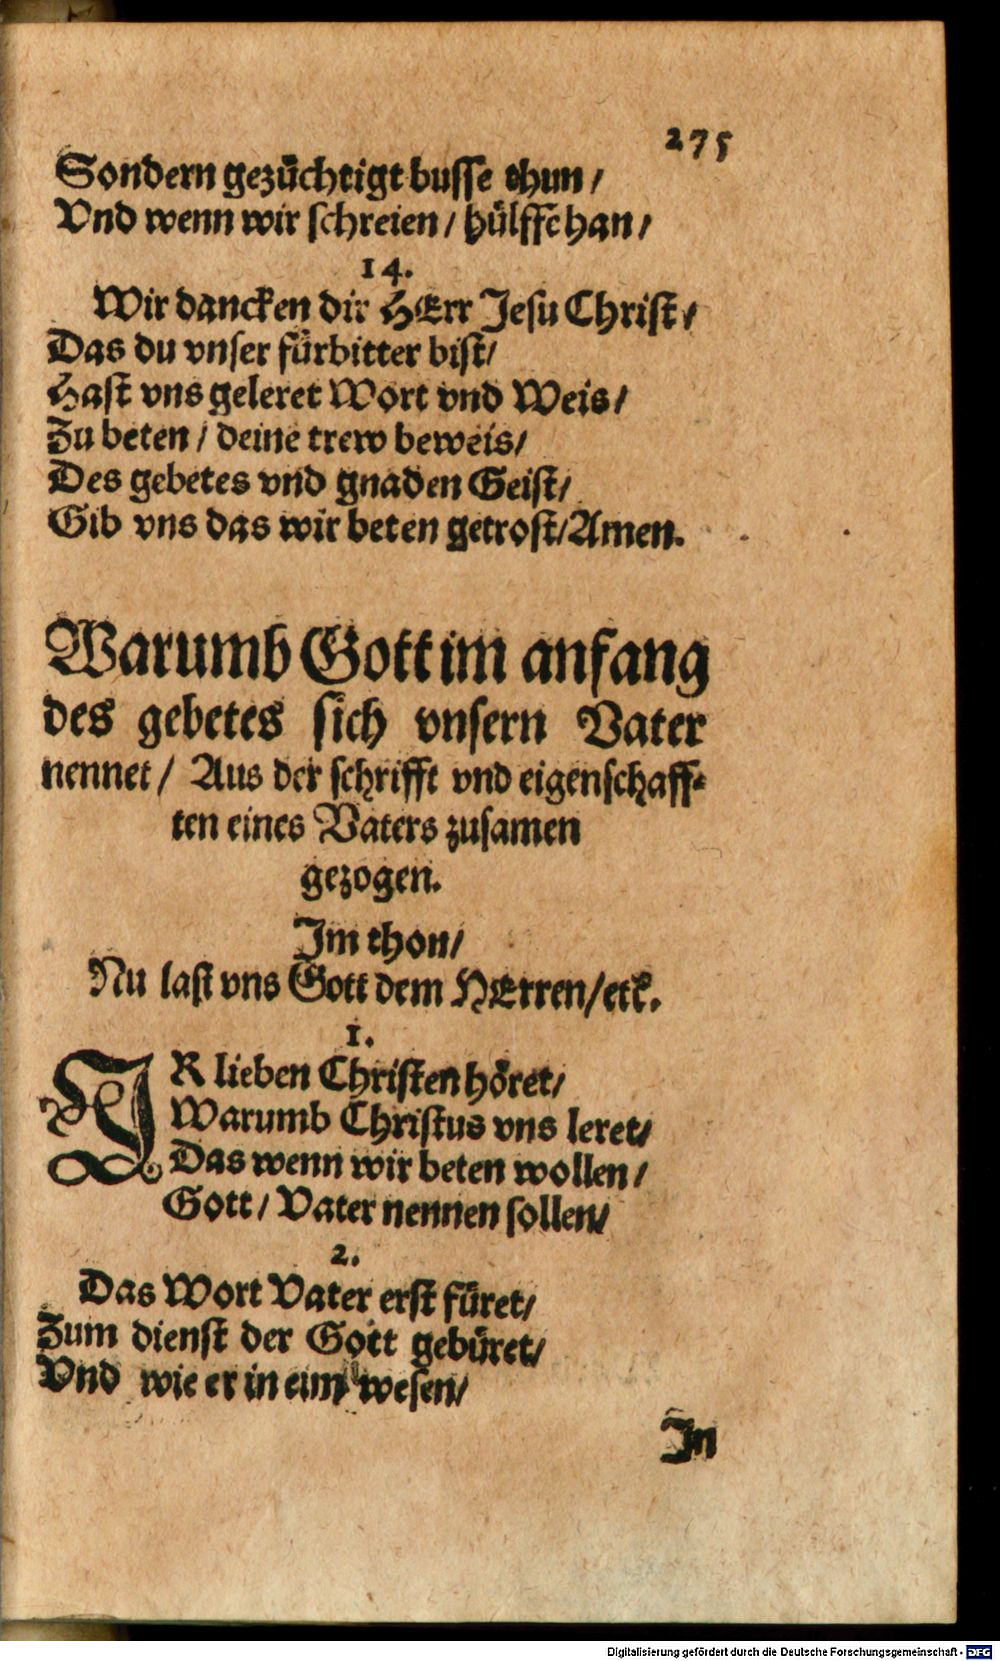 275
Sondern gezüchtigt busse thun /
Vnd wenn wir schreien / hülffe han /
14.
Wir dancken dir HErr Jesu Christ /
Das du vnser fürbitter bist /
Hast vns geleret Wort vnd Weis /
Zu beten / deine trew beweis /
Des gebetes vnd gnaden Geist /
Gib vns das wir beten getrost / Amen.
Warumb Gott im anfang
des gebetes sich vnsern Vater
nennet / Aus der schrifft vnd eigenschaff-
ten eines Vaters zusamen
gezogen.
Im thon /
Nu last vns Gott dem HErren / etc.
1.
IR lieben Christen höret /
Warumb Christus vns leret /
Das wenn wir beten wollen /
Gott / Vater nennen sollen /
2.
Das Wort Vater erst füret /
Zum dienst der Gott gebüret /
Vnd wie er in eim wesen /
In
Digitalisierung gefördert durch die Deutsche Forschungsgemeinschaft - DFG